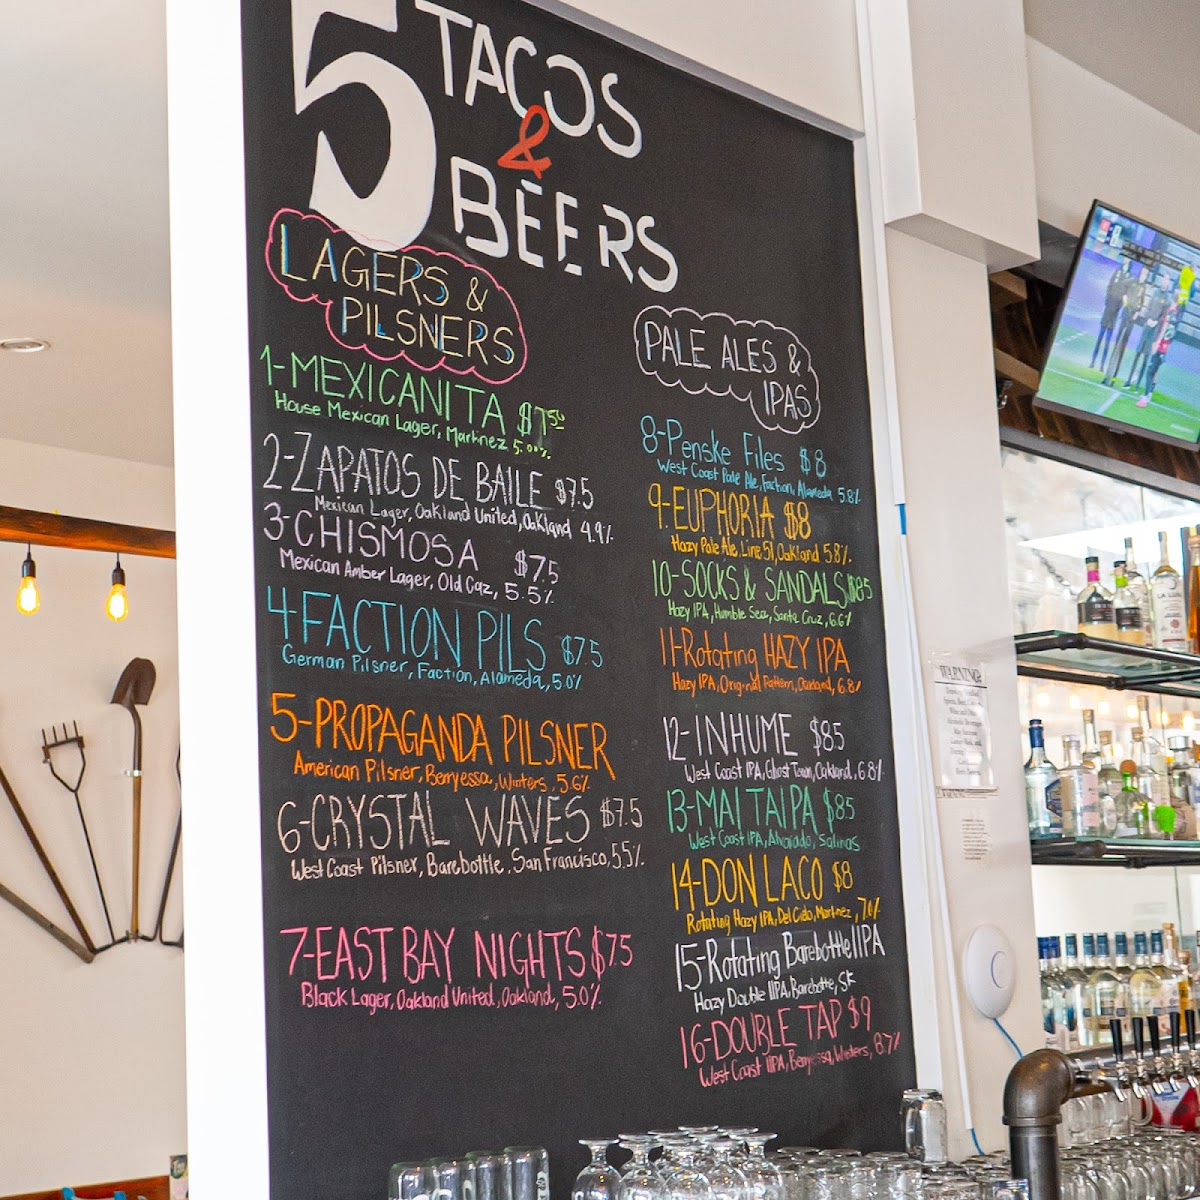 5 TACOS
&
BEERS
LAGERS &
PILSNERS
1-MEXICANITA $7.50
House Mexican Lager, Martinez 5.00%
2-ZAPATOS DE BAILE $7.5
Mexican Lager, Oakland United, Oakland 4.9%
3-CHISMOSA $7.5
Mexican Amber Lager, Old Caz, 5.5%
4-FACTION PILS $7.5
German Pilsner, Faction, Alameda, 5.0%
5-PROPAGANDA PILSNER
American Pilsner, Berryessa, Winters, 5.6%
6-CRYSTAL WAVES $7.5
West Coast Pilsner, Barebottle, San Francisco, 5.5%
7-EAST BAY NIGHTS $7.5
Black Lager, Oakland United, Oakland, 5.0%
PALE ALES &
IPAS
8-Penske Files $8
West Coast Pale Ale, Faction, Alameda 5.8%
9-EUPHORIA $8
Hazy Pale Ale, Line 51, Oakland 5.8%
10-SOCKS & SANDALS $8.5
Hazy IPA, Humble Sea, Santa Cruz, 6.6%
11-Rotating HAZY IPA
Hazy IPA, Original Pattern, Oakland, 6.8%
12-INHUME $8.5
West Coast IPA, Ghost Town, Oakland, 6.8%
13-MAI TAI PA $8.5
West Coast IPA, Alvarado, Salinas
14-DON LACO $8
Rotating Hazy IPA, Del Cielo, Martinez, 7.0%
15-Rotating Barebottle IIPA
Hazy Double IIPA, Barebottle, SF
16-DOUBLE TAP $9
West Coast IIPA, Berryessa, Winters, 8.7%
WARNING: